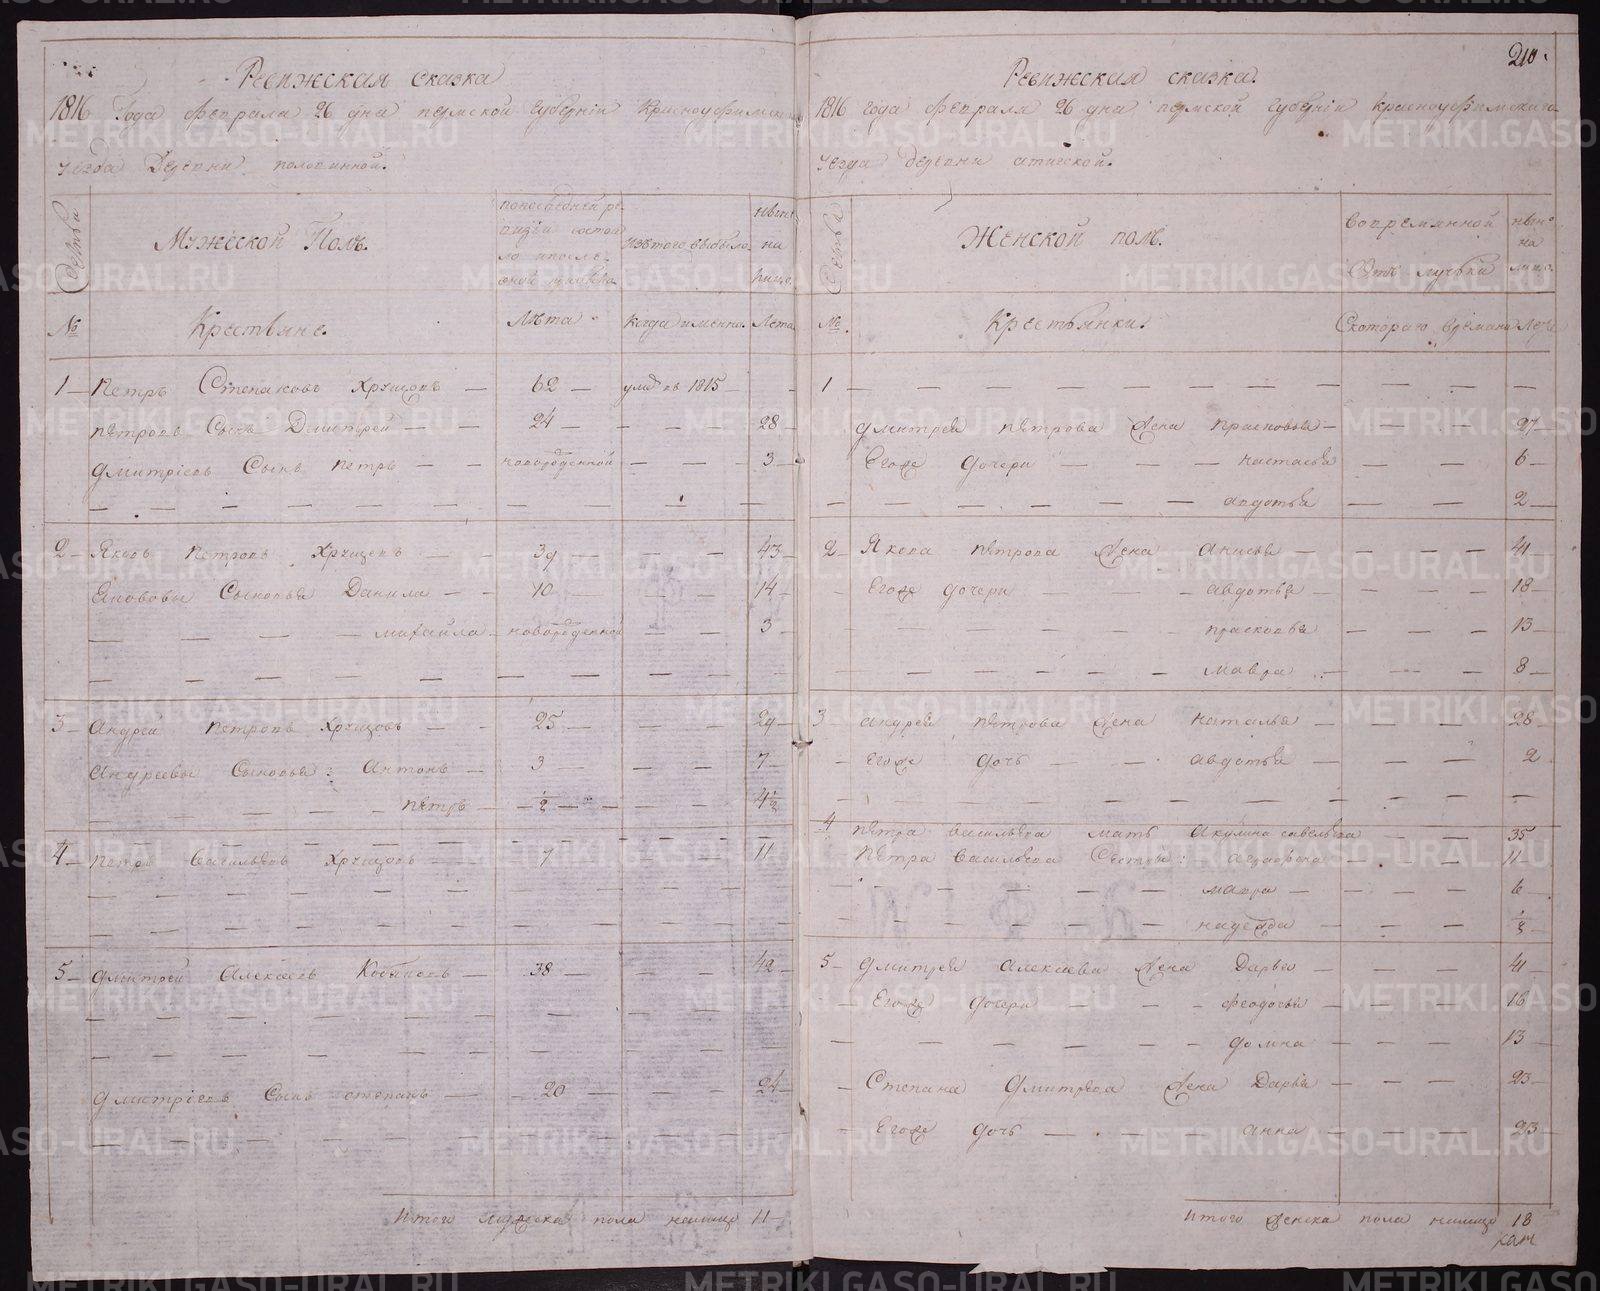 210.
Ревижская сказка
1816 Года Февраля 26 дня пермской Губернїи Красноуфимска
уезда Деревни половинной.
Семьи
Мужеской Полъ.
Изтого выбыло.
ныне
на
лицо.
№
Крестьяне.
Лѣта
Когда именно.
Лета
1 Петръ Степановъ Хрущовъ 62 умре въ 1815
Петровъ Сынъ Дмитрей 24 28
Дмитрїевъ Сынъ петръ новорожденной 3
2 Яковъ Петровъ Хрущевъ 39 43
Якововы Сыновья Данила 10 14
михайла новорожденной 3
3 Андрей Петровъ Хрущовъ 25 29
Андреевы Сыновья: Антонъ 3 7
петръ ½ 4½
4 Петръ Васильевъ Хрущовъ 7 11
5 Дмитрей Алексѣевъ 38 42
Дмитрїевъ Сынъ степанъ 20 24
Итого мужеска пола налицо 11
Ревижская сказка.
1816 года Февраля 26 дня пермской губернїи красноуфимскаго
уезда деревни
Семьи
Женской полъ.
Вовременной
Отлучьки
ныне
на
лицо.
№
Крестьянки.
Скотораго времяни
Лета
1
дмитрея петрова жена прасковья 27
Егоже дочери настасья 6
авдотья 2
2 Якова петрова жена анисья 41
Егоже дочери авдотья 18
прасковья 13
мавра 8
3 андрея петрова жена наталья 28
Егоже дочь авдотья 2
4 петра васильева мать Акулина савельева 35
Петра васильева Сестры: 11
мавра 6
надежда ½
5 дмитрея алексеева жена Дарья 41
Егоже дочери феодосья 16
домна 13
Степана дмитрева жена Дарья 23
Егоже дочь анна
Итого женска пола налицо 18
METRIKI.GASO-URAL.RU